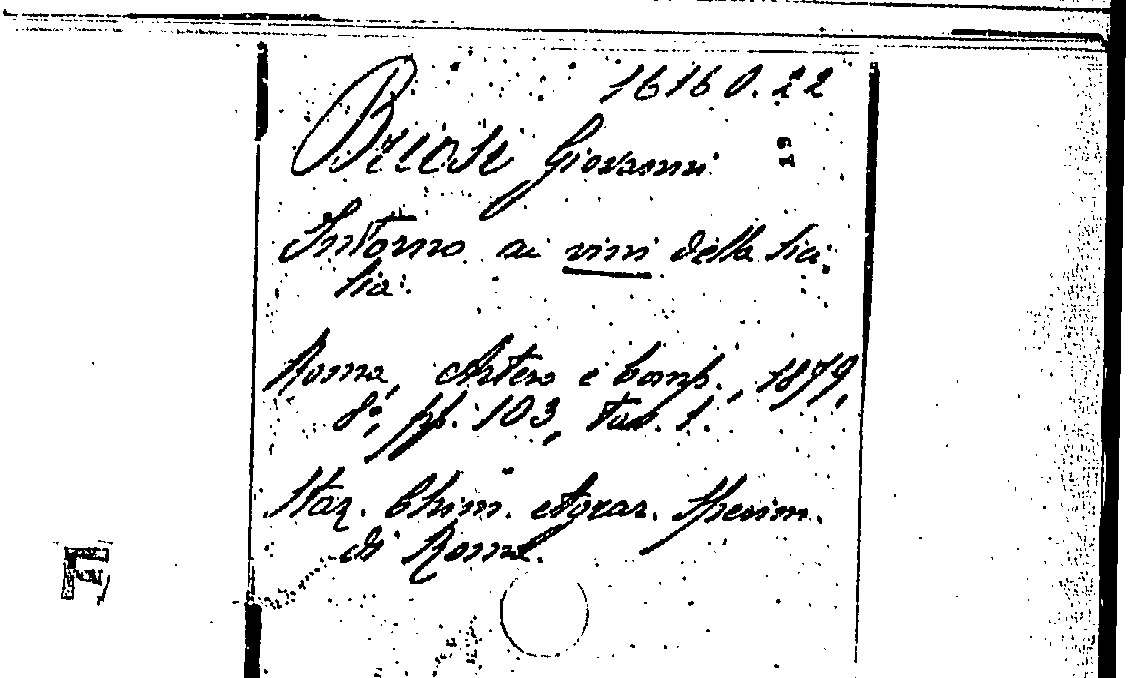 16160.22
Briosi Giovanni
Intorno ai vini della Sici-
lia.
Roma, Artero e Comp., 1879,
8°, pp. 103, tav. 1.
Staz. Chim. Agrar. Sperim.
di Roma.